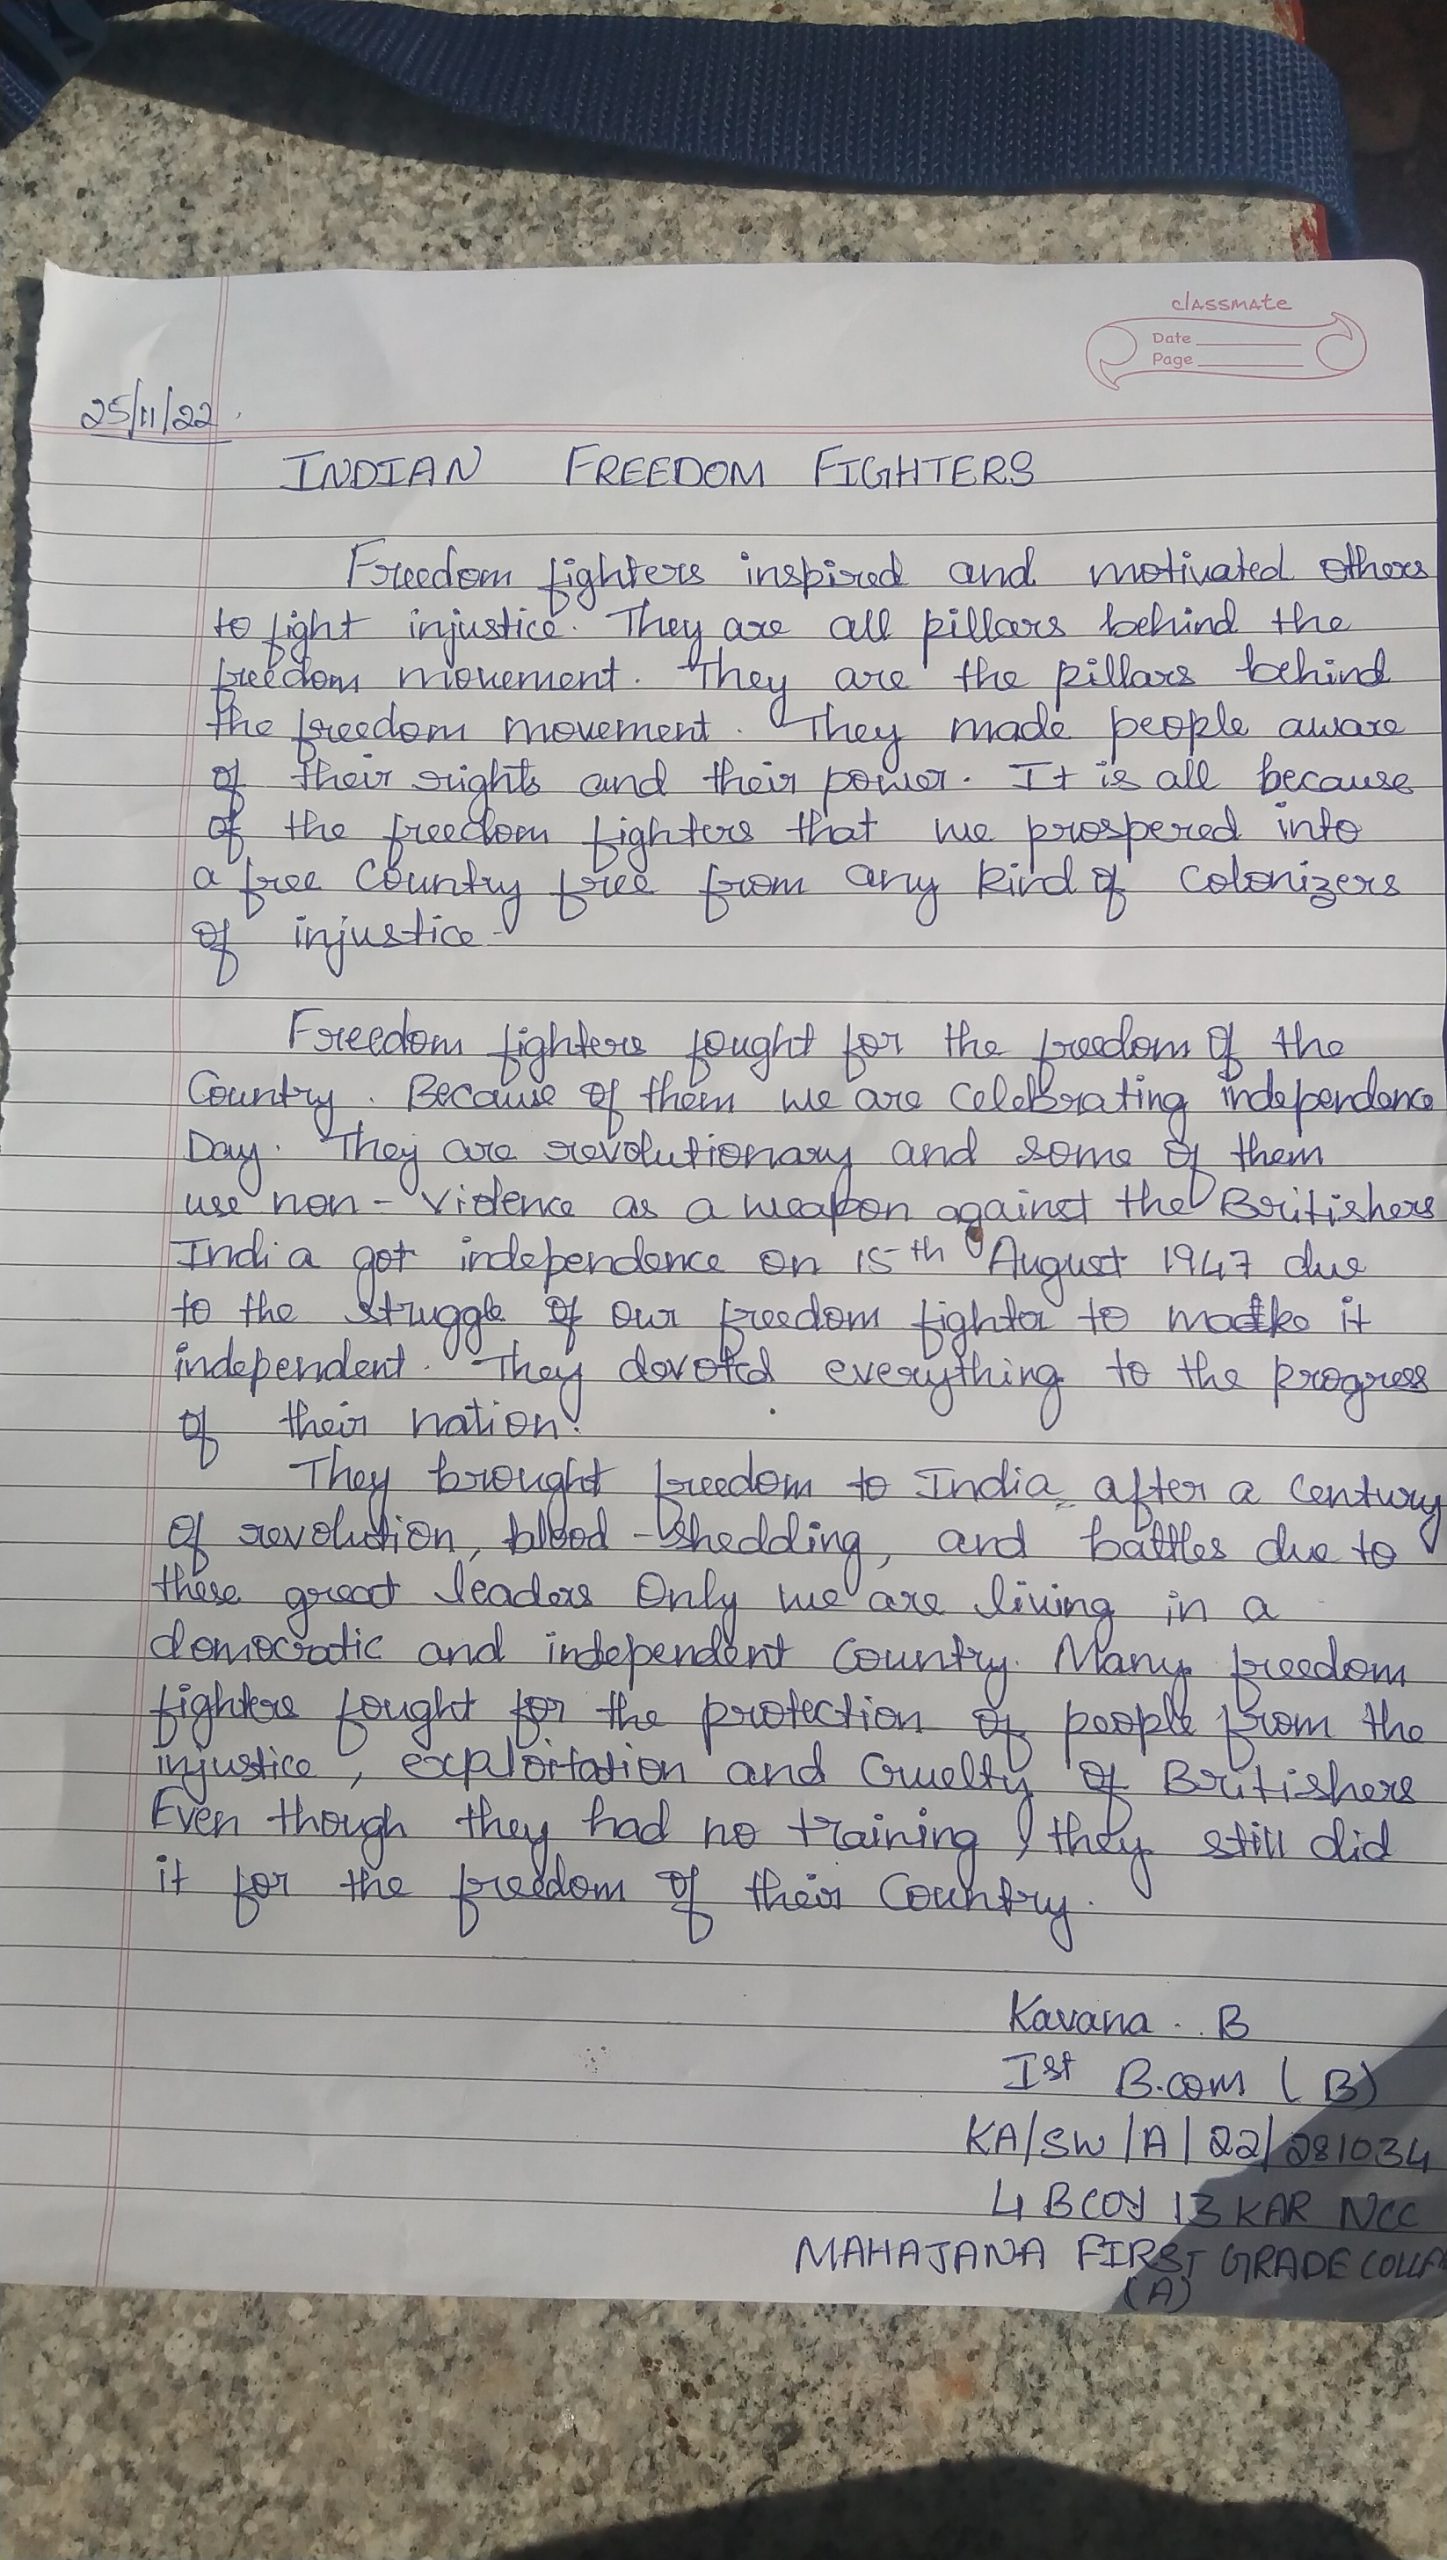 classmate
Date
Page
25/11/22
INDIAN FREEDOM FIGHTERS
Freedom fighters inspired and motivated others
to fight injustice. They are all pillars behind the
freedom movement. They are the pillars behind
the freedom movement. They made people aware
of their rights and their power. It is all because
of the freedom fighters that we prospered into
a free Country free from any kind of Colonizers
of injustice.
Freedom fighters fought for the freedom of the
Country. Because of them we are Celebrating independence
Day. They are revolutionary and some of them
use non-violence as a weapon against the Britishers
India got independence on 15th August 1947 due
to the struggle of our freedom fighter to make it
independent. They devoted everything to the progress
of their nation.
They brought freedom to India, after a Century
of revolution, blood-shedding, and battles due to
these great leaders Only we are living in a
democratic and independent Country. Many freedom
fighters fought for the protection of people from the
injustice, exploitation and Cruelty of Britishers
Even though they had no training, they still did
it for the freedom of their Country.
Kavana . B
Ist B.com (B)
KA/SW/A/22/281034
4 BCOY 13 KAR NCC
MAHAJANA FIRST GRADE
(A)